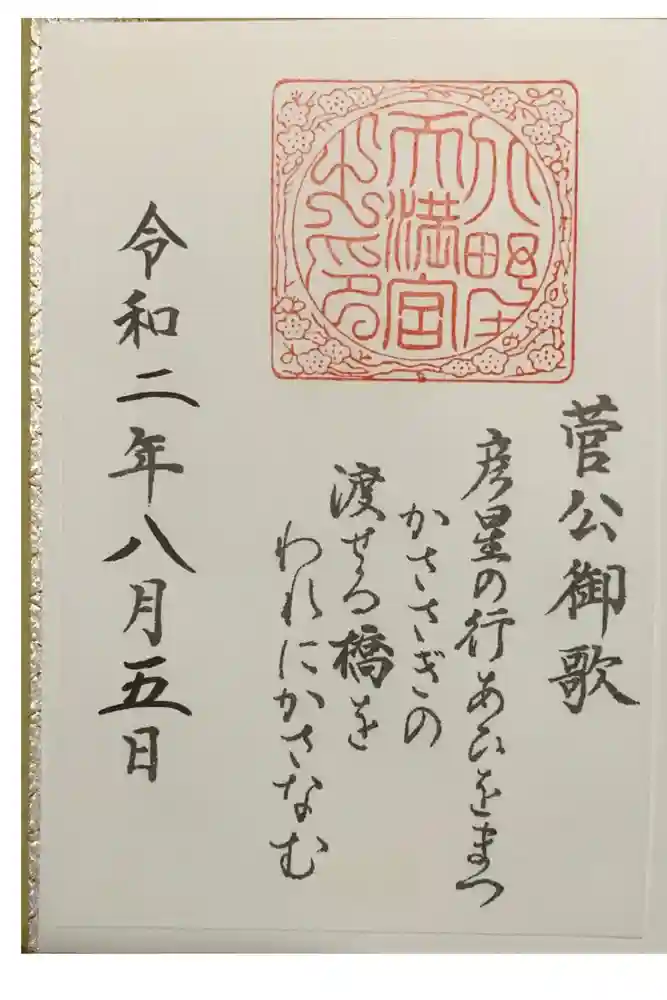 天満宮
之印
菅公御歌
彦星の行あひをまつ
かささぎの
渡せる橋を
われにかさなむ
令和二年八月五日